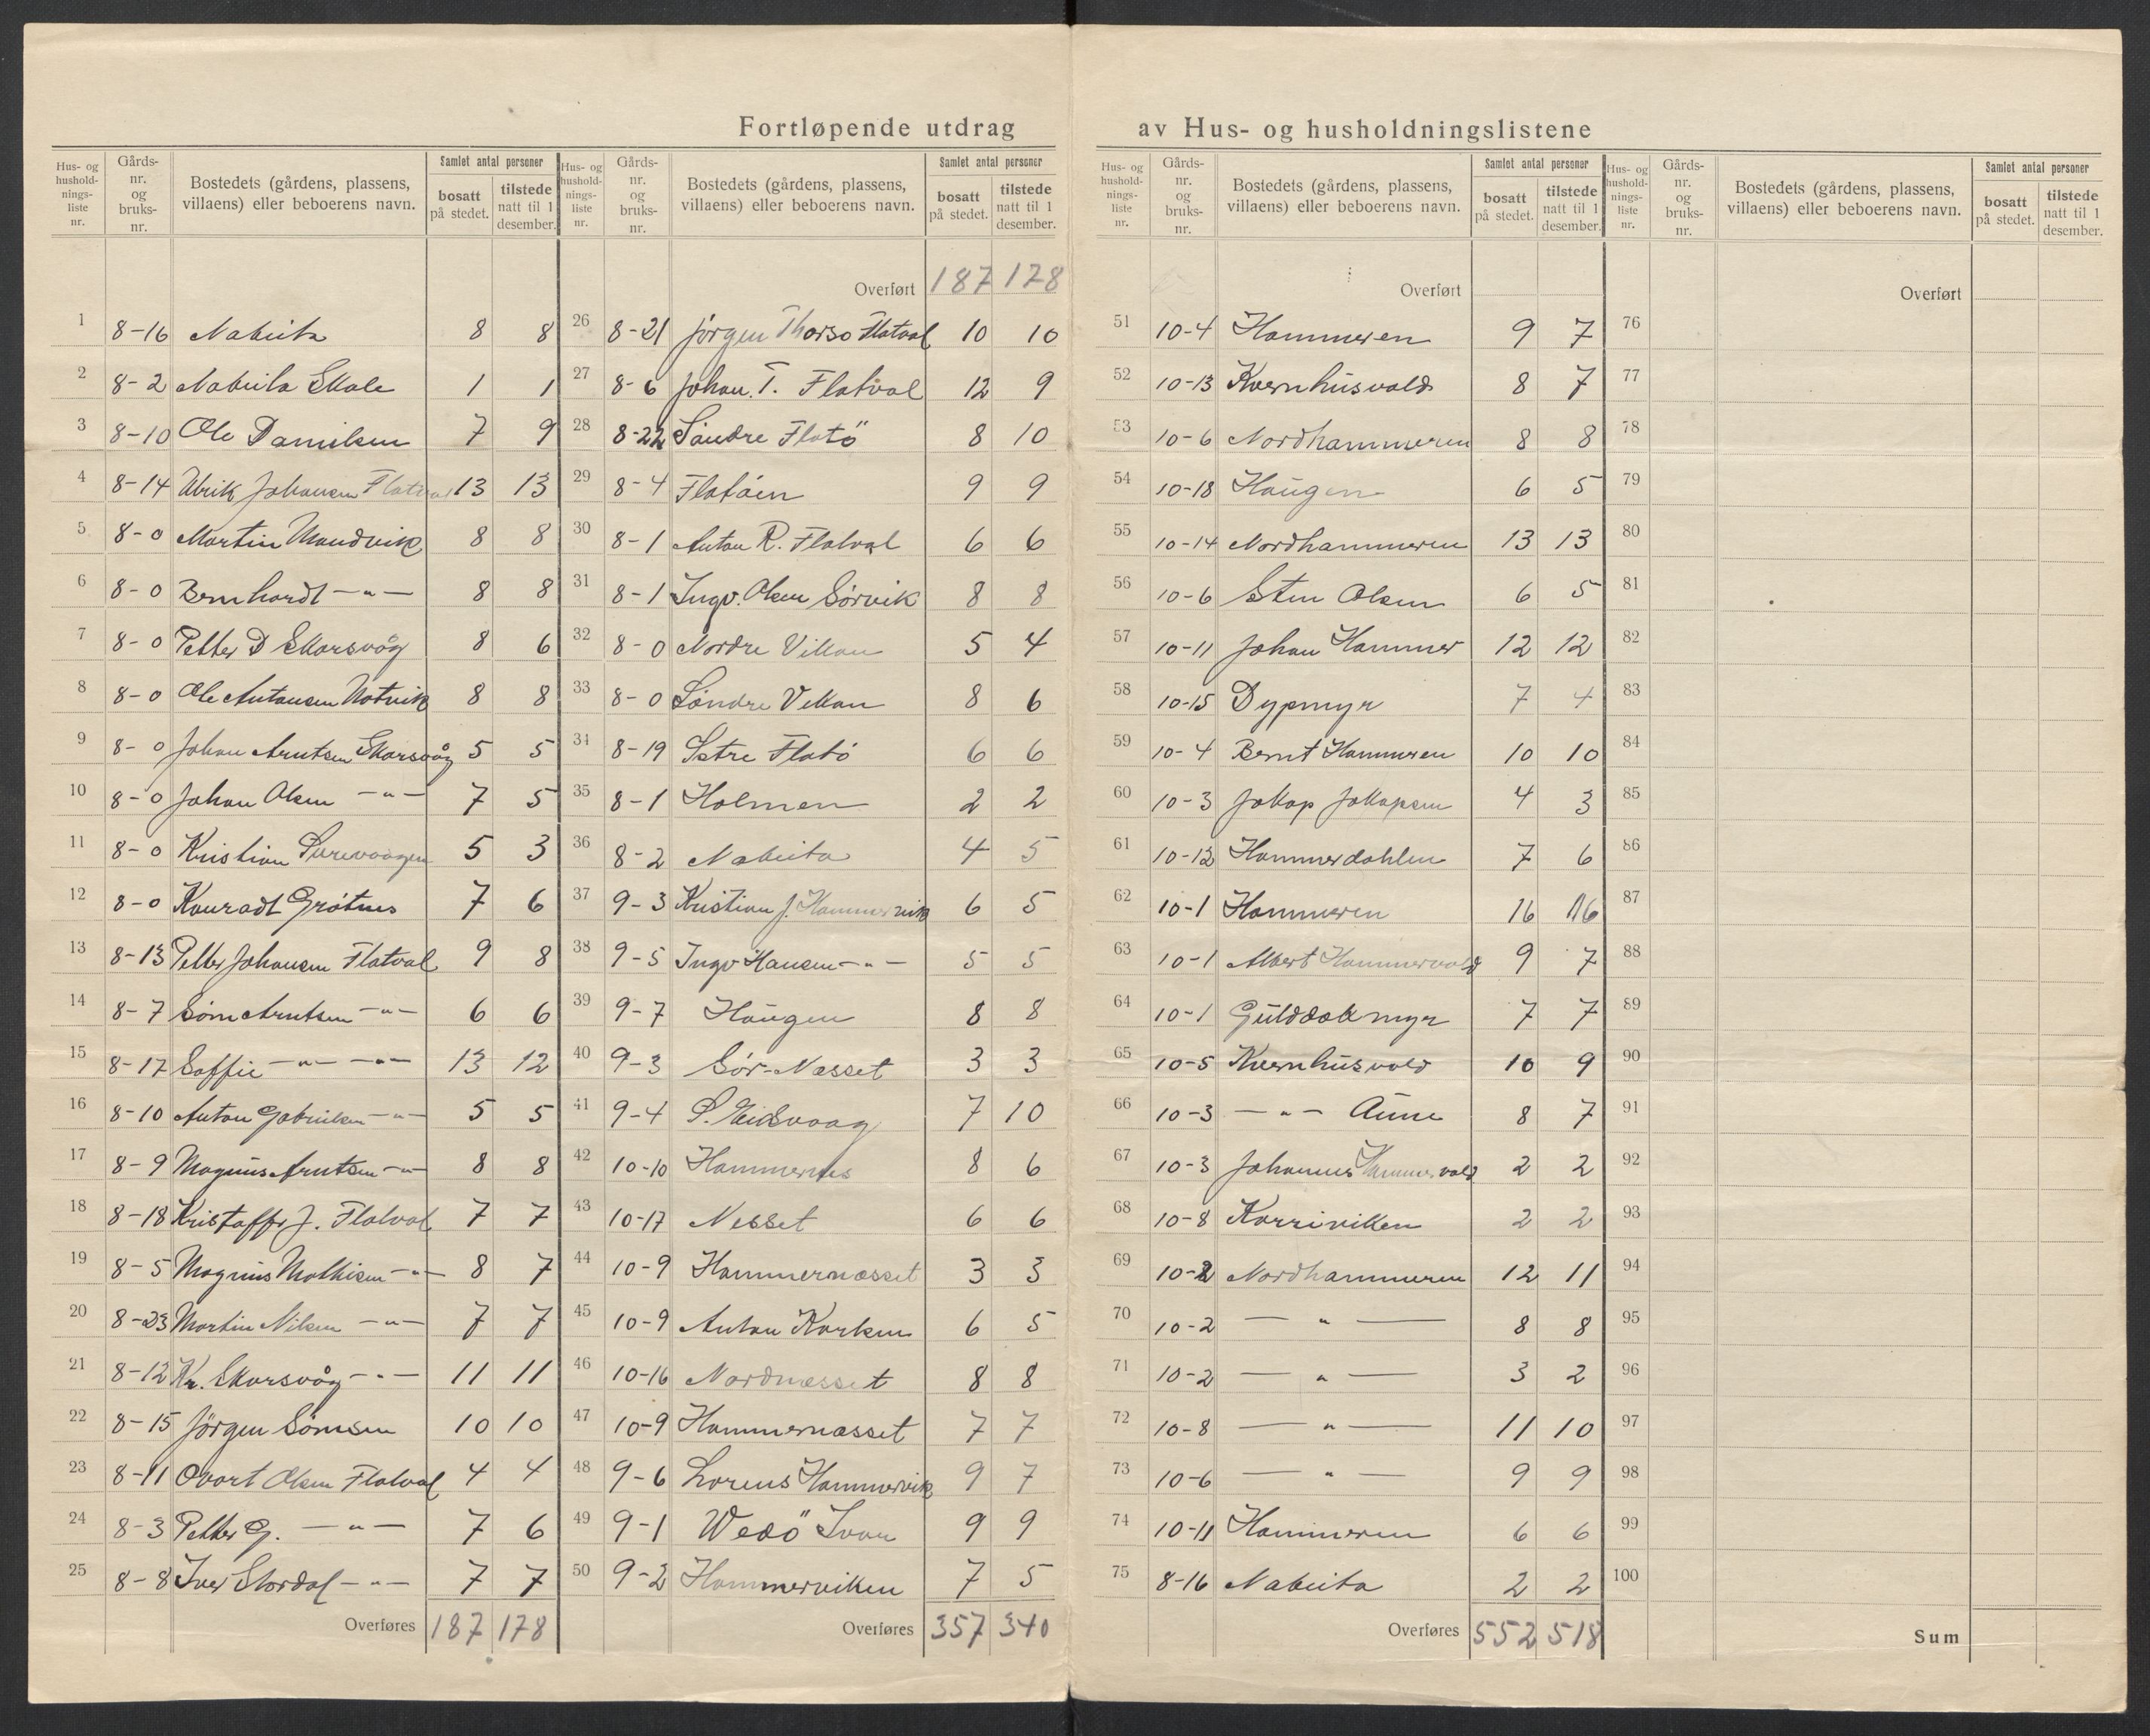 Fortløpende utdrag av Hus- og husholdningslistene
Hus- og husholdnings-liste nr. Gårds-nr. og bruks-nr. Bostedets (gårdens, plassens, villaens) eller beboerens navn. Samlet antal personer bosatt på stedet. tilstede natt til 1 desember.
1 8-16 Nabeita 8 8
2 8-2 Nabeita Skole 1 1
3 8-10 Ole Danielsen 7 9
4 8-14 Ulrik Johansen Flatval 13 13
5 8-0 Martin Mandvik 8 8
6 8-0 Bernhardt -"- 8 8
7 8-0 Petter D Skarsvåg 8 6
8 8-0 Ole Antonsen Notvik 8 8
9 8-0 Johan Arntsen Skarsvåg 5 5
10 8-0 Johan Olsen -"- 7 5
11 8-0 Kristian 5 3
12 8-0 Konradt Grötnes 7 6
13 8-13 Petter Johansen Flatval 9 8
14 8-7 Sörn Arntsen -"- 6 6
15 8-17 Soffie -"- -"- 13 12
16 8-10 Anton Gabrielsen -"- 5 5
17 8-9 Magnus Arntsen -"- 8 8
18 8-18 Kristoffer J. Flatval 7 7
19 8-5 Magnus Mathisen -"- 8 7
20 8-23 Martin Nilsen -"- 7 7
21 8-12 Kr. Skarsvåg -"- 11 11
22 8-15 Jörgen Sörnsen 10 10
23 8-11 Ovart Olsen Flatval 4 4
24 8-3 Petter G. -"- 7 6
25 8-8 Iver Stordal -"- 7 7
Overføres 187 178
Hus- og husholdnings-liste nr. Gårds-nr. og bruks-nr. Bostedets (gårdens, plassens, villaens) eller beboerens navn. Samlet antal personer bosatt på stedet. tilstede natt til 1 desember.
Overført 187 178
26 8-21 Jörgen Thorso Flatval 10 10
27 8-6 Johan. T. Flatval 12 9
28 8-22 Söndre Flatö 8 10
29 8-4 Flatöen 9 9
30 8-1 Anton R. Flatval 6 6
31 8-1 Ingv. Olsen Sörvik 8 8
32 8-0 Nordre Vikan 5 4
33 8-0 Söndre Vikan 8 6
34 8-19 Istre Flatö 6 6
35 8-1 Holmen 2 2
36 8-2 Nabeita 4 5
37 9-3 Kristian J. Hammervik 6 5
38 9-5 Ingv Hansen -"- 5 5
39 9-7 Haugen 8 8
40 9-3 Sör-Næsset 3 3
41 9-4 P. Eidsvaag 7 10
42 10-10 Hammernes 8 6
43 10-17 Nesset 6 6
44 10-9 Hammernæsset 3 3
45 10-9 Anton Karlsen 6 5
46 10-16 Nordnæsset 8 8
47 10-9 Hammernæsset 7 7
48 9-6 Lorens Hammervik 9 7
49 9-1 Wedö Ivan 9 9
50 9-2 Hammerviken 7 5
Overføres 357 340
Hus- og husholdnings-liste nr. Gårds-nr. og bruks-nr. Bostedets (gårdens, plassens, villaens) eller beboerens navn. Samlet antal personer bosatt på stedet. tilstede natt til 1 desember.
Overført
51 10-4 Hammeren 9 7
52 10-13 Kvernhusvold 8 7
53 10-6 Nordhammeren 8 8
54 10-18 Haugen 6 5
55 10-14 Nordhammeren 13 13
56 10-6 Sten Olsen 6 5
57 10-11 Johan Hammer 12 12
58 10-15 Dypmyr 7 4
59 10-4 Bernt Hammeren 10 10
60 10-3 Jakop Jakopsen 4 3
61 10-12 Hammerdahlen 7 6
62 10-1 Hammeren 16 16
63 10-1 Albert Hammervold 9 7
64 10-1 Gulddalsmyr 7 7
65 10-5 Kvernhusvold 10 9
66 10-3 -"- Aune 8 7
67 10-3 Johannes Hammervold 2 2
68 10-8 Korsviken 2 2
69 10-2 Nordhammeren 12 11
70 10-2 -"- 8 8
71 10-2 -"- 3 2
72 10-8 -"- 11 10
73 10-6 -"- 9 9
74 10-11 Hammeren 6 6
75 8-16 Nabeita 2 2
Overføres 552 518
Hus- og husholdnings-liste nr. Gårds-nr. og bruks-nr. Bostedets (gårdens, plassens, villaens) eller beboerens navn. Samlet antal personer bosatt på stedet. tilstede natt til 1 desember.
Overført
76
77
78
79
80
81
82
83
84
85
86
87
88
89
90
91
92
93
94
95
96
97
98
99
100
Sum